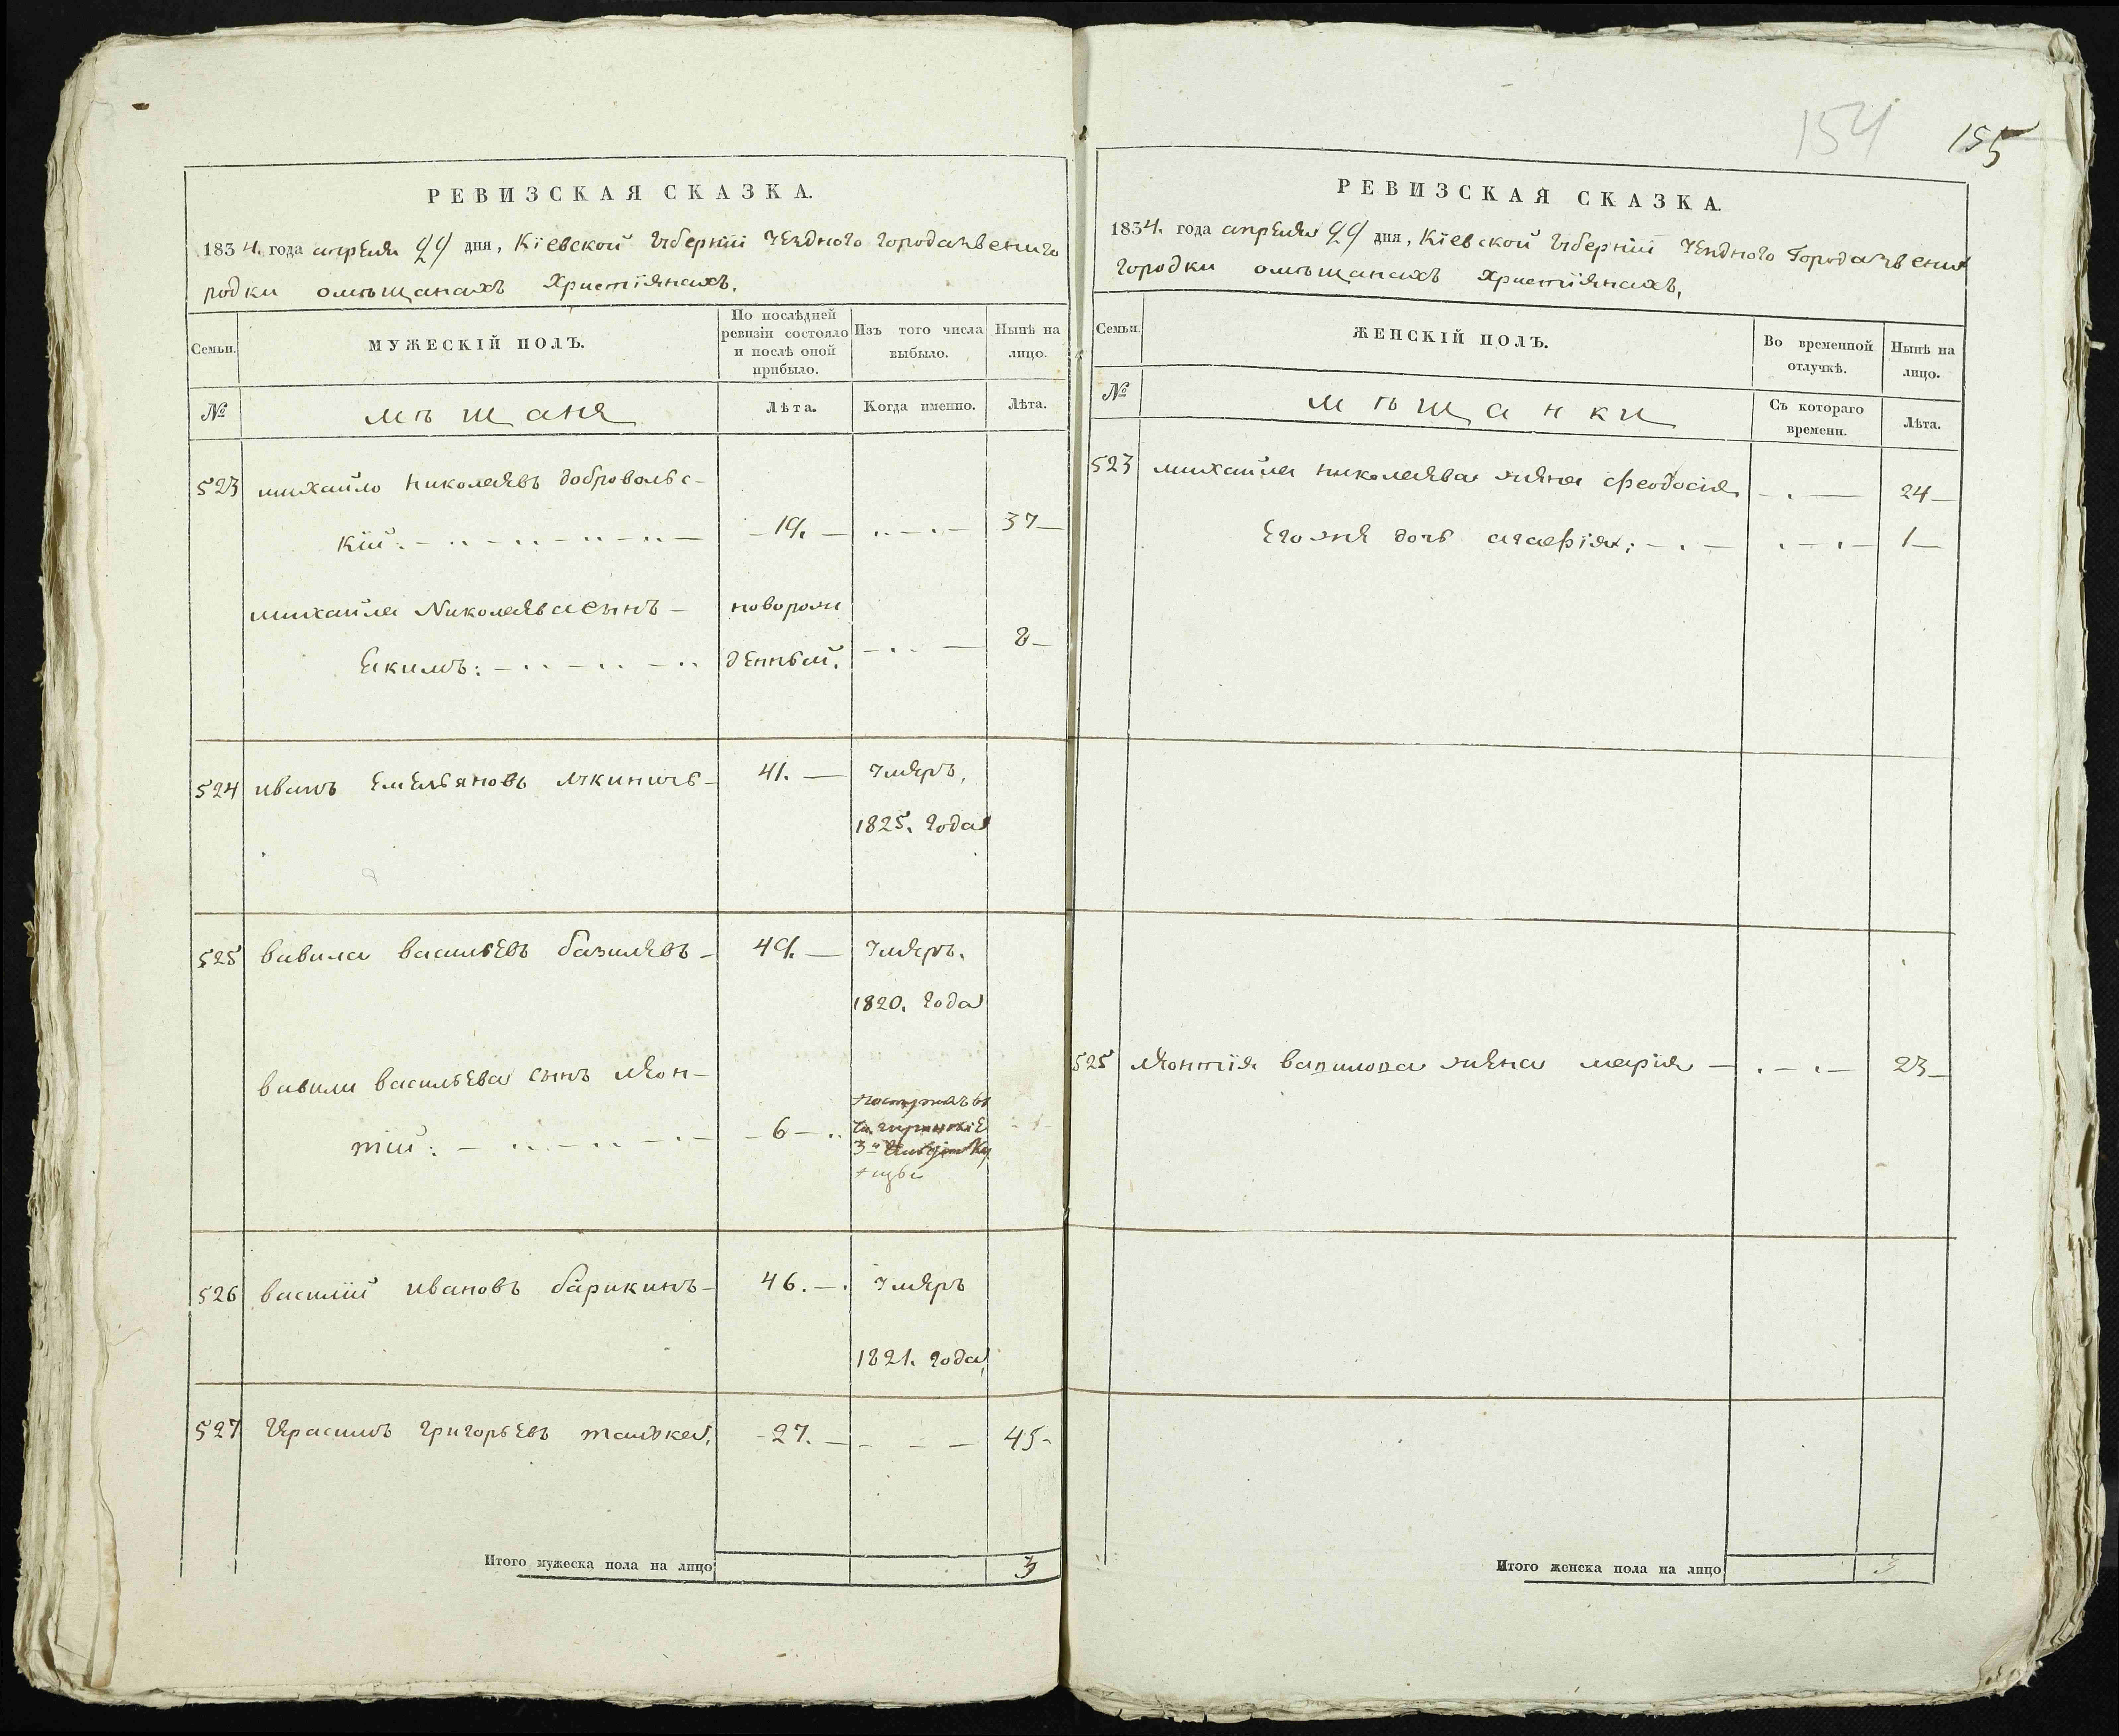 РЕВИЗСКАЯ СКАЗКА.
1834. года апреля 29 дня, Кіевской Губерніи уезднаго города звениго
родки о мѣщанахъ Христіянахъ.
Семьи.
МУЖЕСКІЙ ПОЛЪ.
По послѣдней ревизіи состояло и послѣ оной прибыло.
Изъ того числа выбыло.
Нынѣ на лицо.
№
мѣщане
Лѣта.
Когда именно.
Лѣта.
523 михайло николаевъ добровольс-
кій: 19. 37
михайла Николаева сынъ новорож
Якимъ: денный. 8
524 иванъ Емельяновъ 41. умеръ,
1825. года
525 вавила васильевъ базилевъ 49. умеръ.
1820. года
вавили васильева сынъ леон-
тій: 6
3й
526 василій ивановъ барикинъ 46. умеръ
1821. года
527 Герасимъ григорьевъ 27. 45
Итого мужеска пола на лицо 3
154 155
РЕВИЗСКАЯ СКАЗКА.
1834. года апреля 29 дня, Кіевской Губерніи уезднаго Города звени
городки о мѣщанахъ христіянахъ,
Семьи.
ЖЕНСКІЙ ПОЛЪ.
Во временной отлучкѣ.
Нынѣ на лицо.
№
мѣщанки
Съ котораго времени.
Лѣта.
523 михайла николаева жена феодосія 24
Его же дочь агафія: 1
525 леонтія вавилова жена марія 23
Итого женска пола на лицо 3